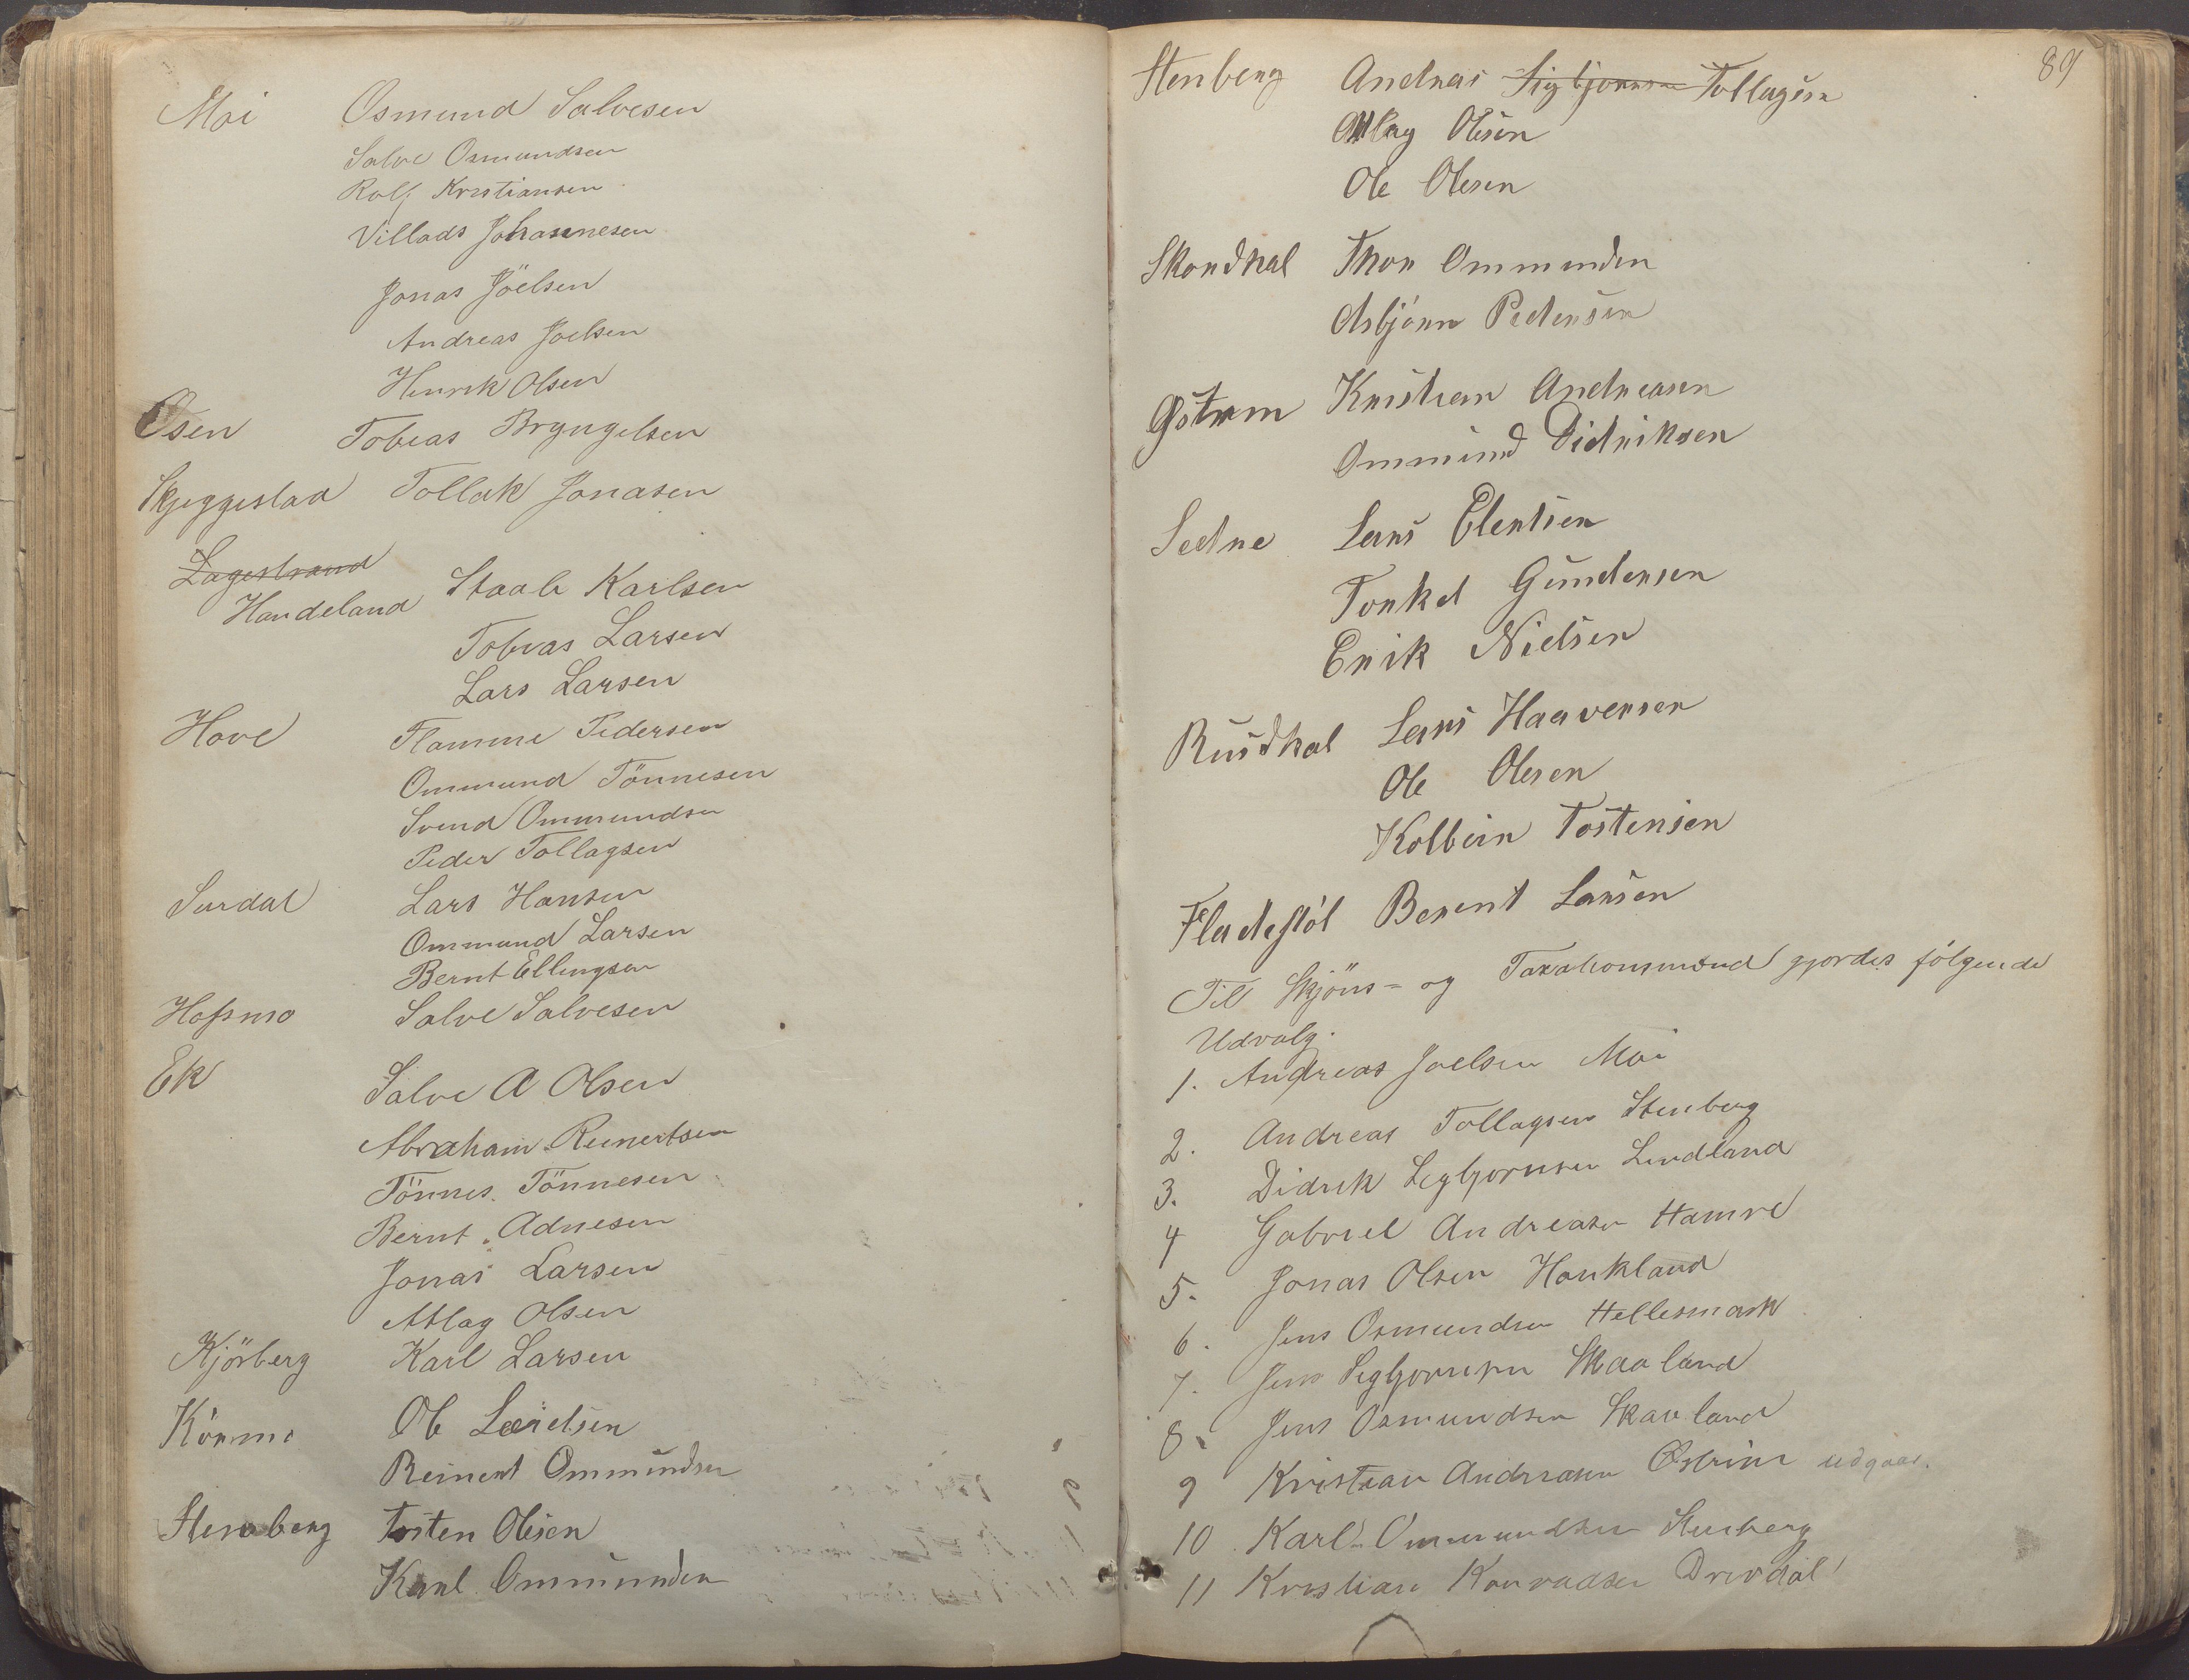 Moi Osmund Salvesen
Salve Osmundsen
Rolf Kristiansen
Villads Johannesen
Jonas Jöelsen
Andreas Joelsen
Henrik Olsen
Osen Tobias Bryngelsen
Skjeggestad Tollak Jonasen
Lagestrand
Handeland Staale Karlsen
Tobias Larsen
Lars Larsen
Hove Flamme Pedersen
Ommund Tönnesen
Svend Ommundsen
Peder Tollagsen
Surdal Lars Hansen
Ommund Larsen
Bernt Ellingsen
Hofsmo Salve Salvesen
Ek Salve A Olsen
Abraham Reinertsen
Tönnes Tönnesen
Bernt Adnesen
Jonas Larsen
Atlag Olsen
Kjörberg Karl Larsen
Körmo Ole
Reinert Ommundsen
Stenberg Tosten Olsen
Karl Ommunden
89
Stenberg Andreas Sigbjornsen Tollagsen
Atlag Olsen
Ole Olesen
Skordhal Thor Ommunden
Asbjörn Pedersen
Østrem Kristian Andreasen
Ommund Didriksen
Sedne Lars Elertsen
Torkel Gundersen
Erik Nielsen
Rusdhal Lars Haaversen
Ole Olesen
Kolbein Tostensen
Fladestöl Berent Larsen
Til Skjöns- og Taxationsmænd gjordes fölgende
Udvalg.
1. Andreas Joelsen Moi
2. Andreas Tollagsen Stenberg
3. Didrik Segbjornsen Lindland
4 Gabriel Andreasen Hamre
5. Jonas Olsen Haukland
6. Jens Osmundsen Hellesmark
7. Jens Segbjornsen Skaaland
8. Jens Osmundsen Skaaland
9 Kristian Andreasen Østrim udgaar.
10. Karl Ommundsen Stenberg
11 Kristian Konradsen Drivdal